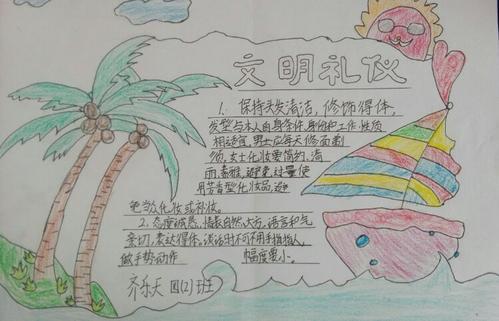 文明礼仪
1、保持头发清洁，修饰得体，
发型与本人自身条件、身份和工作性质
相适宜，男士应每天修面剃
须，女士化妆要简约、清
丽、素雅，避免过量使
用芳香型化妆品，避
免当众化妆或补妆。
2、态度诚恳，情表自然、大方、语言和气
亲切，表达得体，谈话时不可用手指指人，
做手势动作 幅度要小。
齐乐天 四(2)班